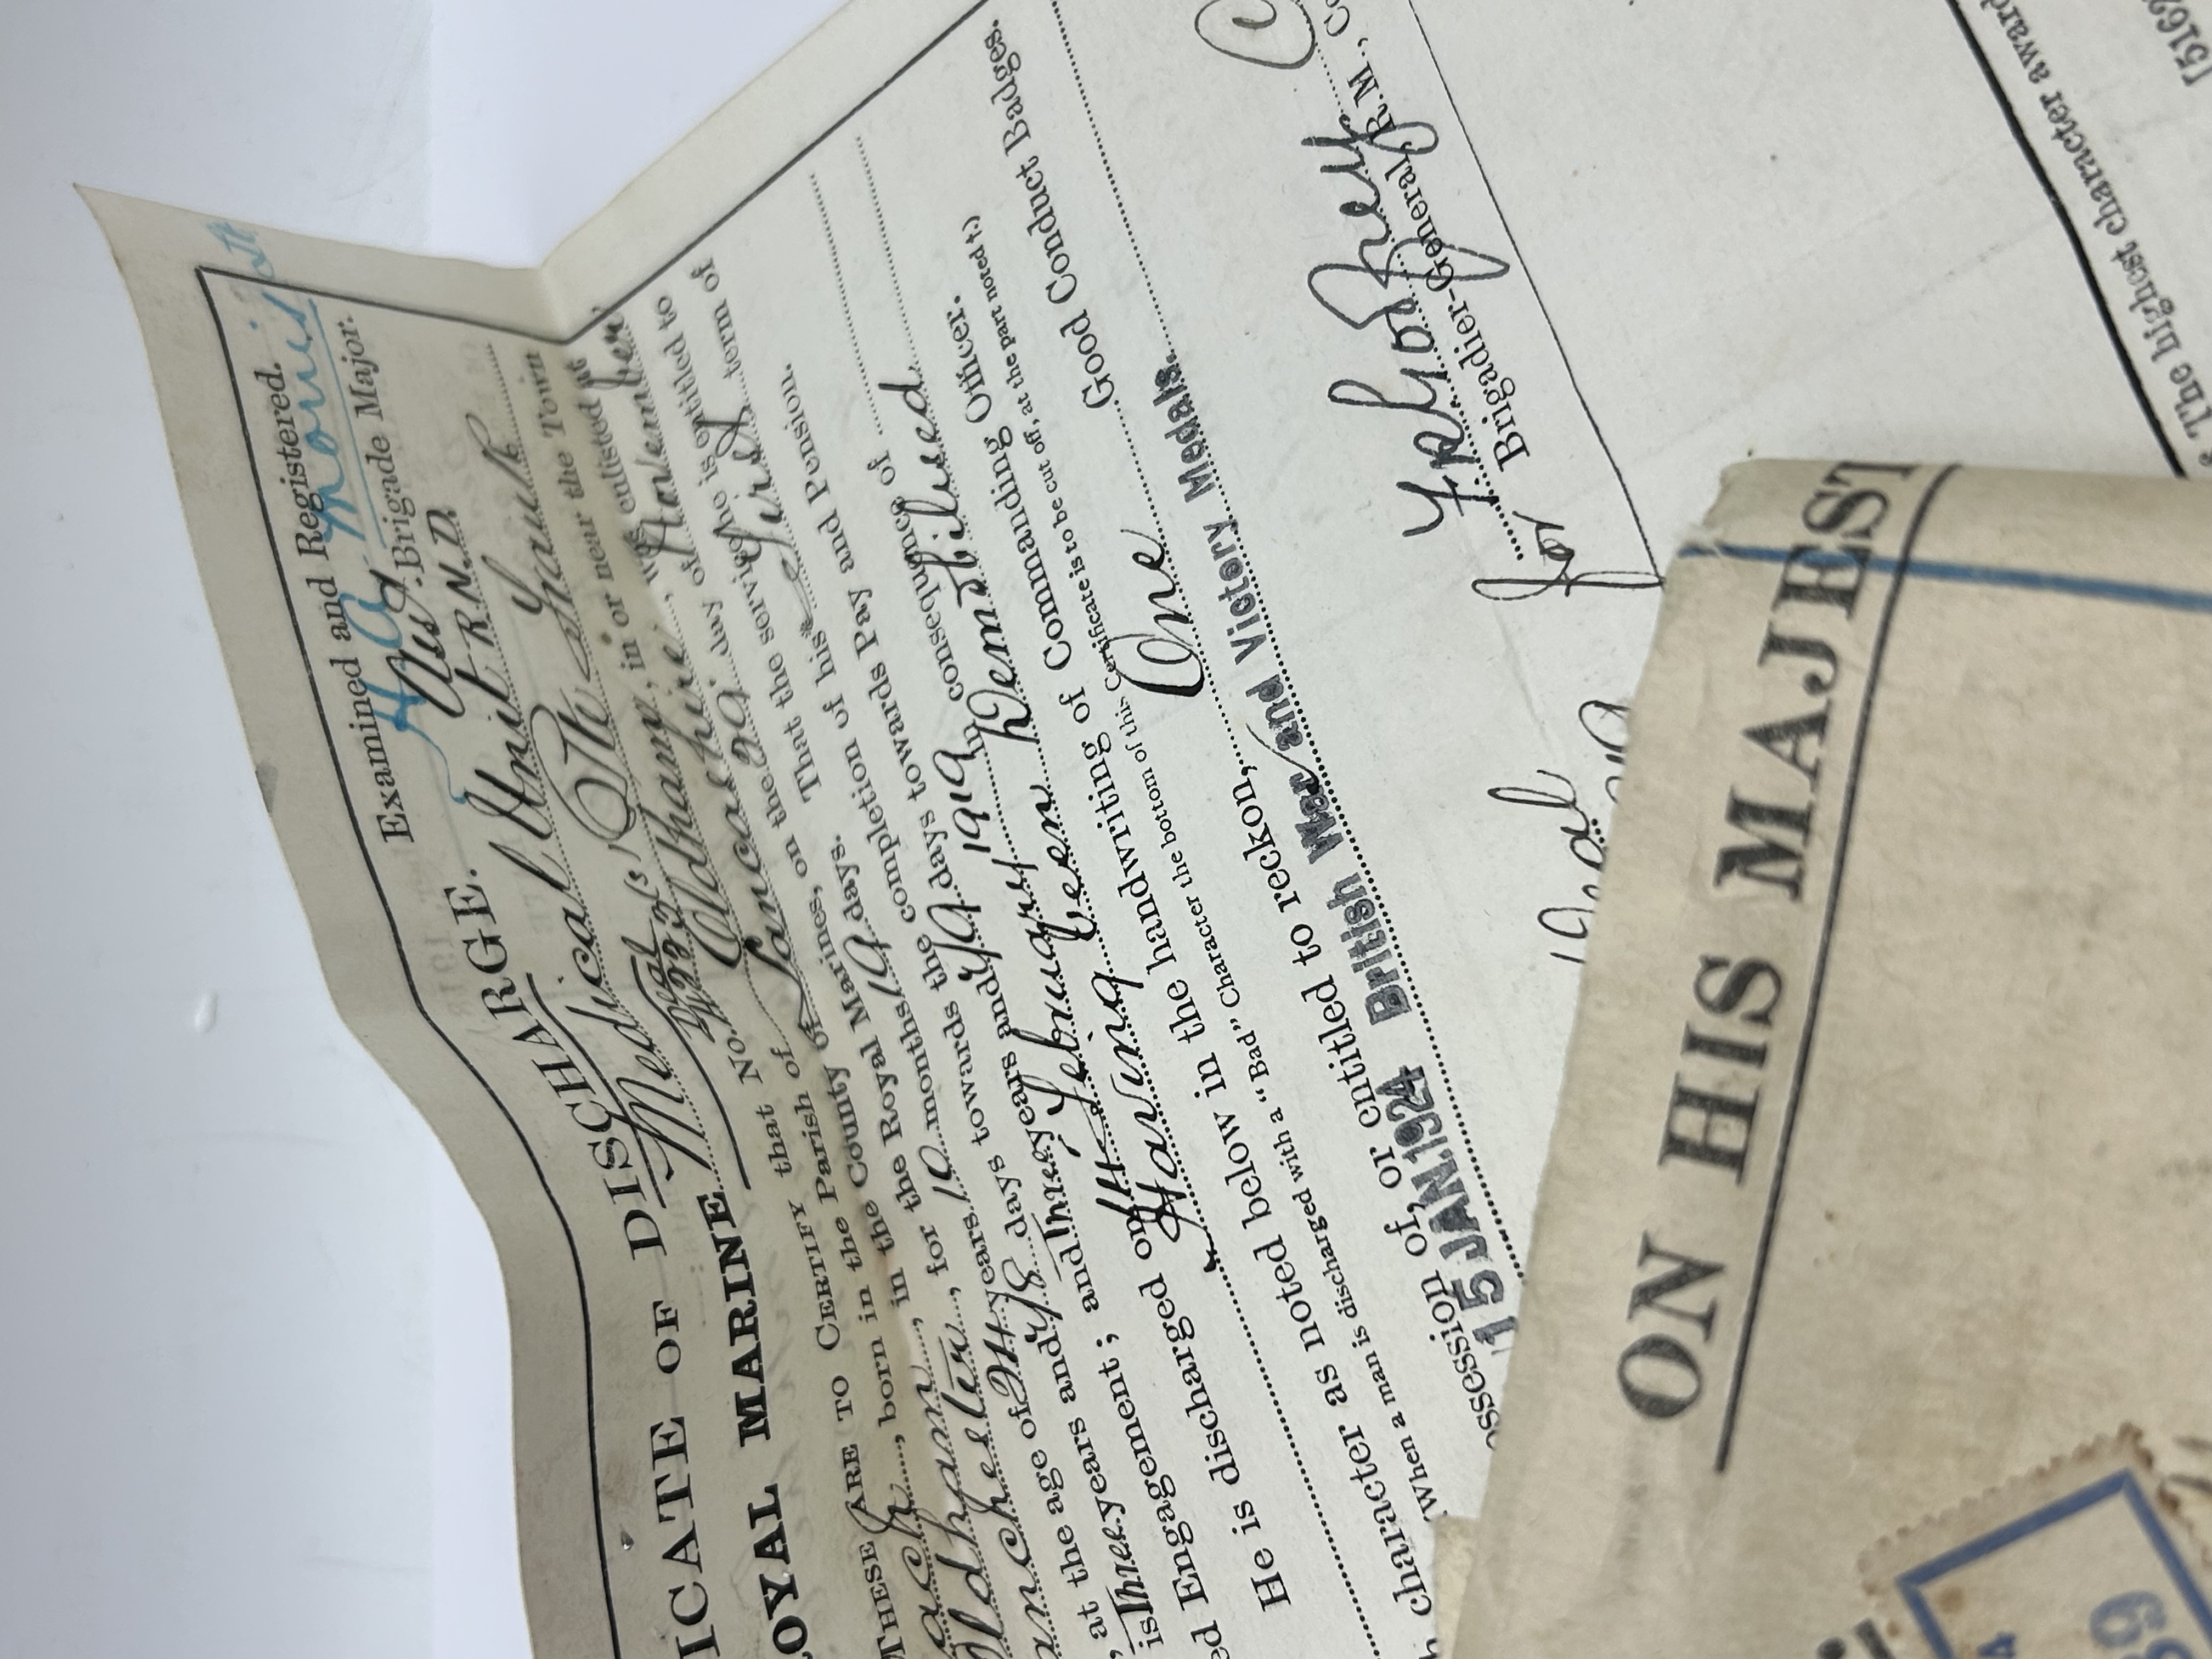 Examined and Registered.
H. A.
Asst. Brigade Major.
ICATE OF DISCHARGE.
OYAL MARINE Medical Unit R.N.D.
THESE ARE TO CERTIFY that No. Deal 3223(S) Otto Gault
, born in the Parish of Oldhame, in or near the Town
Oldham, in the County of Lancashire, was enlisted at
anchester, in the Royal Marines, on the 29 day of November
, at the age of 24 years 10 months 19 days. That the service he is entitled to
is Three years and 48 days towards the completion of his First term of
ed Engagement; and Three years and 49 days towards Pay and Pension.
He is discharged on 14 February 1919 in consequence of
Having been Demobilised
h character as noted below in the handwriting of Commanding Officer.
(When a man is discharged with a "Bad" Character the bottom of this Certificate is to be cut off, at the part noted †)
ossession of, or entitled to reckon, One Good Conduct Badges.
15 JAN. 1924 British War and Victory Medals.
for Brigadier-General, R.M., Co
Deal
The highest character award
[5162
ON HIS MAJEST